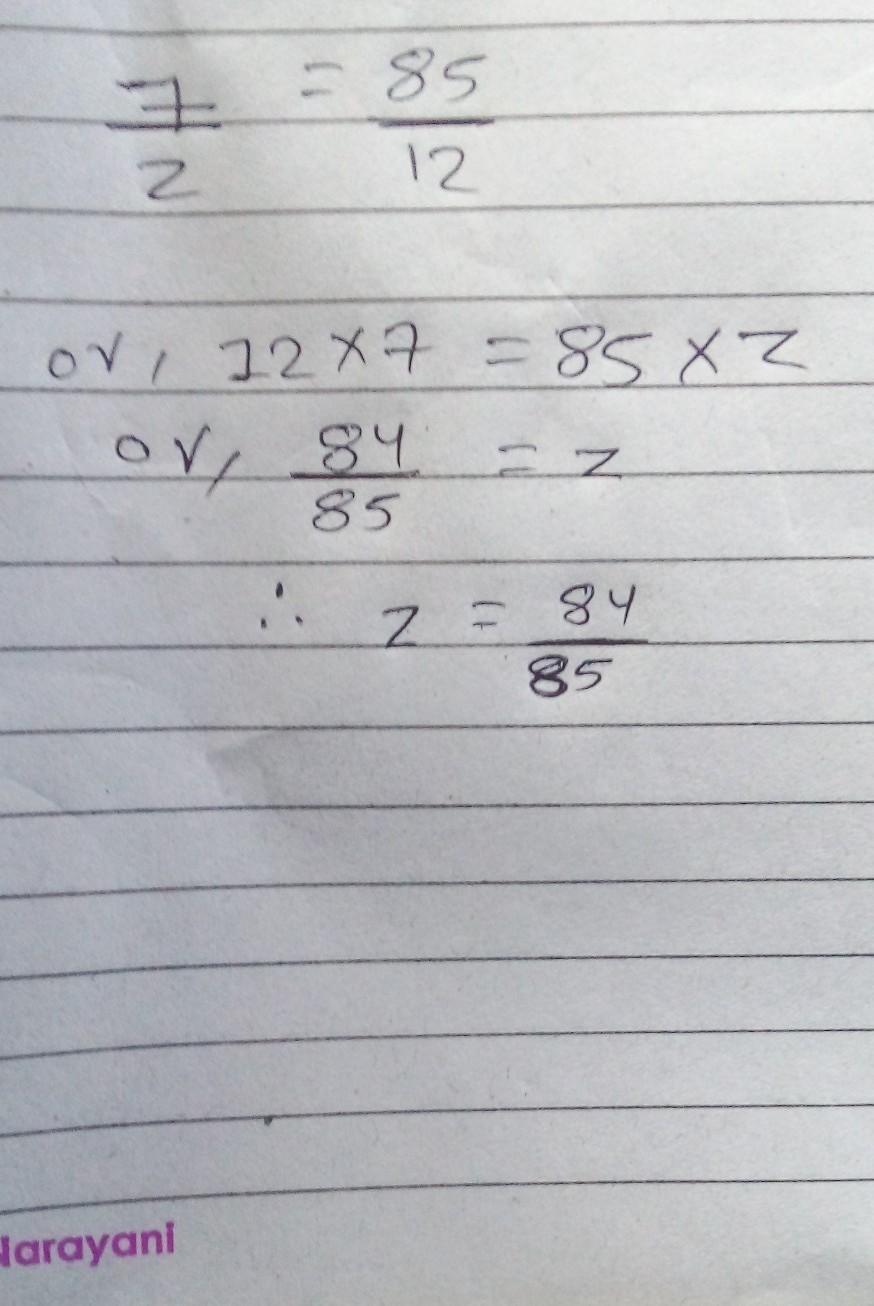 7/z = 85/12
or, 12 × 7 = 85 × z
or, 84/85 = z
∴ z = 84/85
Narayani